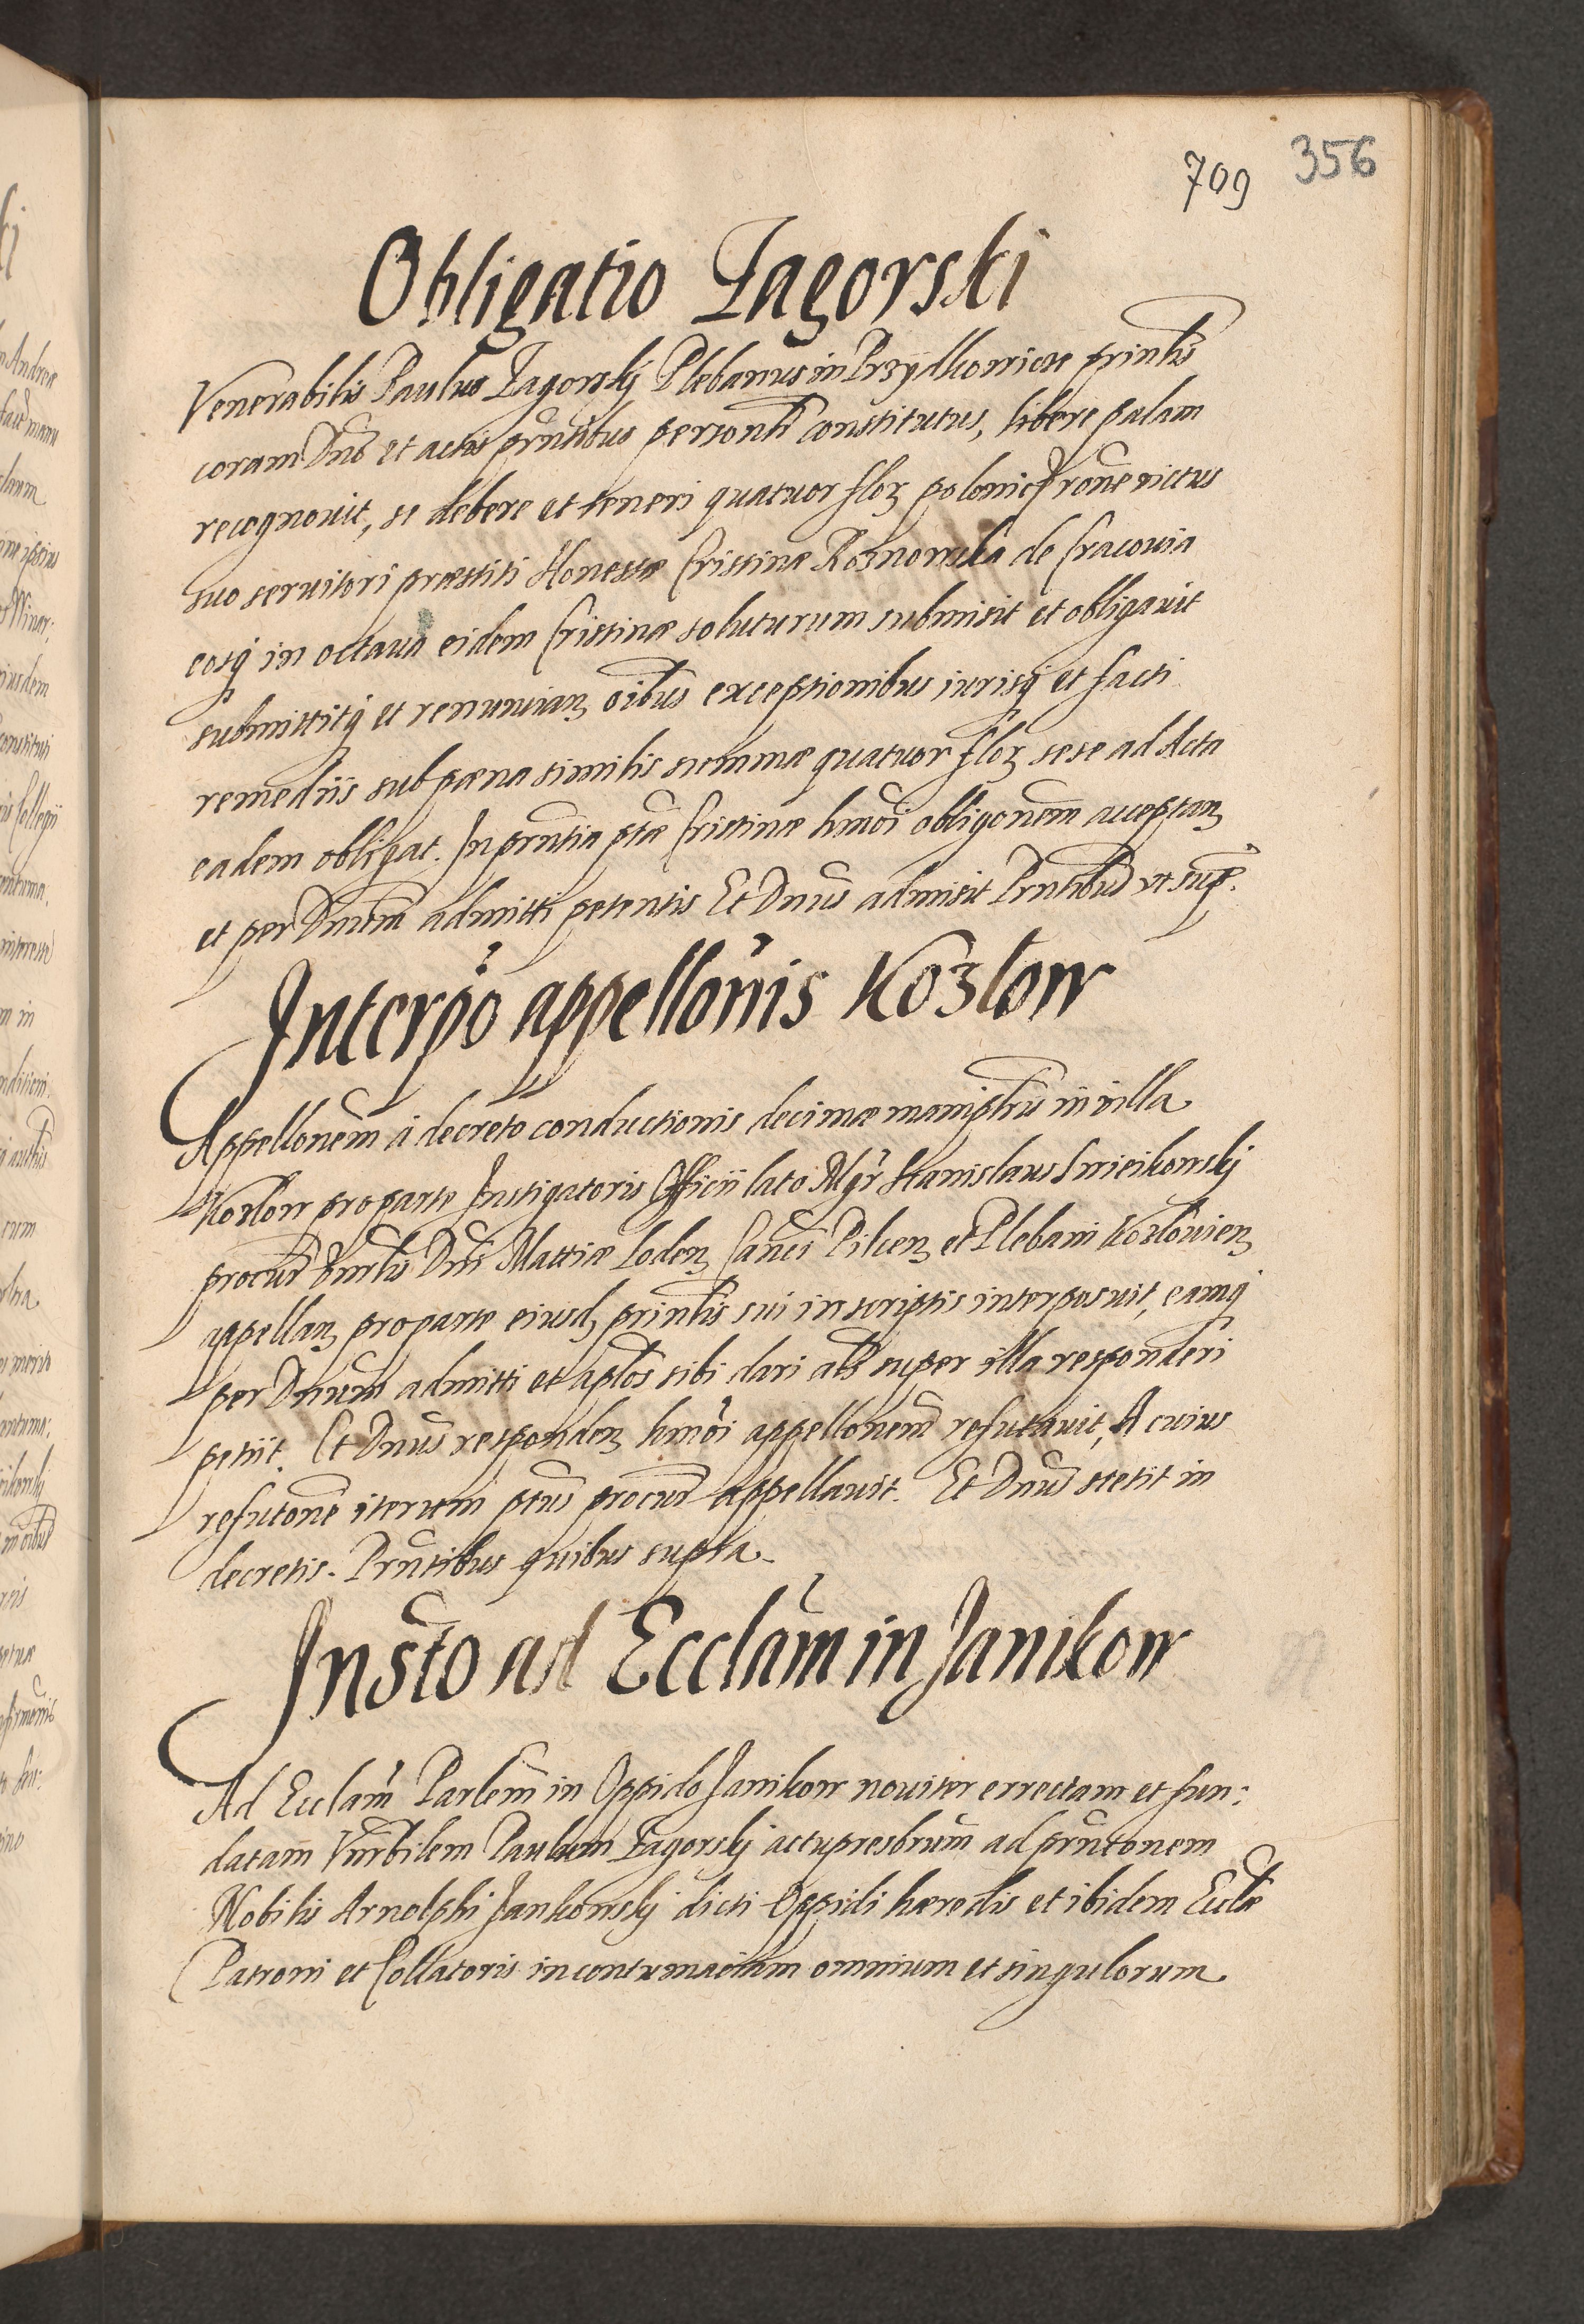 709 356
Obligatio Zagorski
Venerabilis Paulus Zagorskij Plebanus in Przydkowicze prinlis
coram Dno et actis prntibus personlr constitutus, libere palam
recognouit, se debere et teneri quatuor floz polonic rone victus
suo seruitori præstiti Honestæ Cristinæ Roznowska de Cracouia
eosq in octaua eidem Cristinæ soluturum submisit et obligauit
submittitq et renuncianz oibus exceptionibus iurisq et facti
remediis sub pæna similis summæ quatuor floz sese ad Acta
eadem obligat. In prntia ptæ Cristinæ hmoi obligonem acceptanz
et per Dnum admitti petentis Et Dnus admisit Prntibus vt sup.
Interpo appellonis Kozlow
Appellonem a decreto conductionis decimæ manipltis in villa
Kozlow pro parte Instigatoris Officii lato Mgr Stanislaus Swieikowskj
procur Vnrlis Dni Mattiæ Lodenz Canci Pilcenz et Plebani Kozlowienz
appellanz pro parte eiusd prinlis sui in scriptis interposuit, eamq
per Dnum admitti et aplos sibi dari als super illa responderi
petiit. Et Dnus respondenz hmoi appellonem refutauit, A cuius
refutone iterum ptus procur appellauit. Et Dnus stetit in
decretis. Prntibus quibus supra
Insto ad Ecclam in Janikow
Ad Ecclam Parlem in Oppido Janikow nouiter errectam et fun:
datam Vnrbilem Paulum Zagorskj actu presbrum ad prntonem
Nobilis Arnolphi Jankowskj dicti Oppidi hæredis et ibidem Eccle
Patroni et Collatoris in contumaciam omnium et singulorum